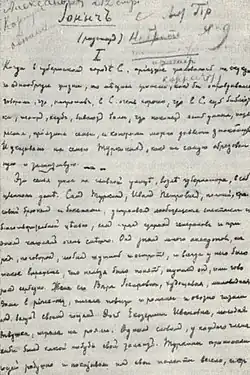 Іонычъ
(разсказъ)
I
Когда в губернском городе С. приезжие жаловались на скуку
и однообразие жизни, то местные жители, как бы оправдываясь,
говорили, что, напротив, в С. очень хорошо, что в С. есть библіо-
тека, театр, клубъ, бывают балы, что, наконец, есть умные, инте-
ресные, приятные семьи, с которыми можно завести знакомства.
И указывали на семью Туркиных, как на самую образован-
ную и талантливую.
Эта семья жила на главной улице, возле губернатора, в соб-
ственном доме. Сам Туркин, Иван Петрович, полный, краси-
вый брюнет с бакенами, устраивал любительские спектакли с
благотворительною целью, сам играл старых генералов и при
этом кашлял очень смешно. Он знал много анекдотов, ша-
рад, поговорок, любил шутить и острить, и всегда у него было
такое выражение, что нельзя было понять, шутит он или гово-
рит серьезно. Жена его Вера Іосифовна, худощавая, миловидная
дама в pince-nez, писала повести и романы и охотно читала
их вслух своим гостям. Дочь Екатерина Ивановна, молодая
девушка, играла на рояли. Одним словом, у каждого члена
семьи был какой-нибудь свой талант. Туркины принимали
гостей радушно и показывали им свои таланты весело,